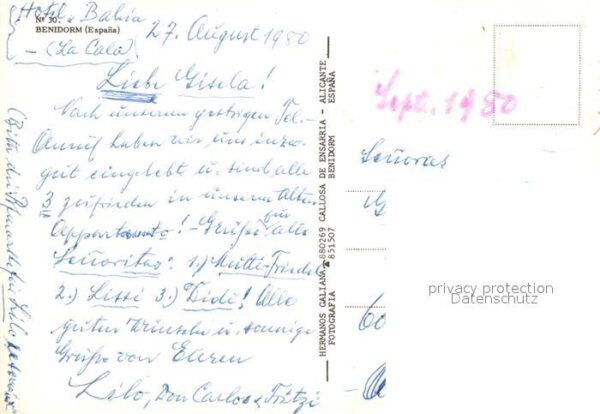 Hotel Bahia
Nº 30.
BENIDORM (España)
(La Cala)
27. August 1980
Liebe Gisela!
Nach unserem gestrigen Tel.-
Anruf haben wir uns inzw.
gut eingelebt u. sind alle
3 zufrieden in unserem Alten
Appartamento! - Grüße für alle
Señoritas: 1.) Mutti-Friedel
2.) Lissi 3.) Didi! Alle
guten Wünsche u. sonnige
Grüße von Euren
Lilo, Don Carlos u. Fritzi
(Bitte die für Lilo
HERMANOS GALIANA - 880269 CALLOSA DE ENSARRIA - ALICANTE
FOTOGRAFIA 851507 BENIDORM ESPAÑA
Sept. 1980
Señoras
G
60
privacy protection
Datenschutz